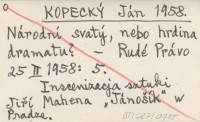 KOPECKÝ Ján 1958.
Národní svatý, nebo hrdina
dramatu? — Rudé Právo
25 II 1958: 5.
Inscenizacja sztuki
Jiří Mahena "Jánošík" w
Pradze.